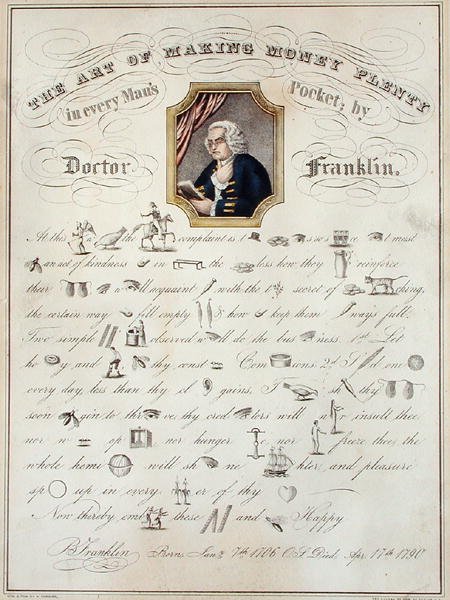 THE ART OF MAKING MONEY PLENTY
in every Man's Pocket; by
Doctor Franklin.
At this the complaint is t so s ce t must
an act of kindness in the less how they reinforce
their w ll acquaint with the t secret of ching,
the certain way fill empty & how keep them ways full.
Two simple observed w ll do the bus ness. 1st Let
ho y and thy const Com ons 2d S d one
every day less than thy cl gains, T sh thy
soon gin to thr ve, thy cred tors will a r insult thee
nor w op nor hunger e, nor freeze thee, the
whole hemi will sh ne hter, and pleasure
sp up in every er of thy
Now thereby emb these and Happy
B Franklin Born, Jany 7th 1706 O.S Died, Apr. 17th 1790